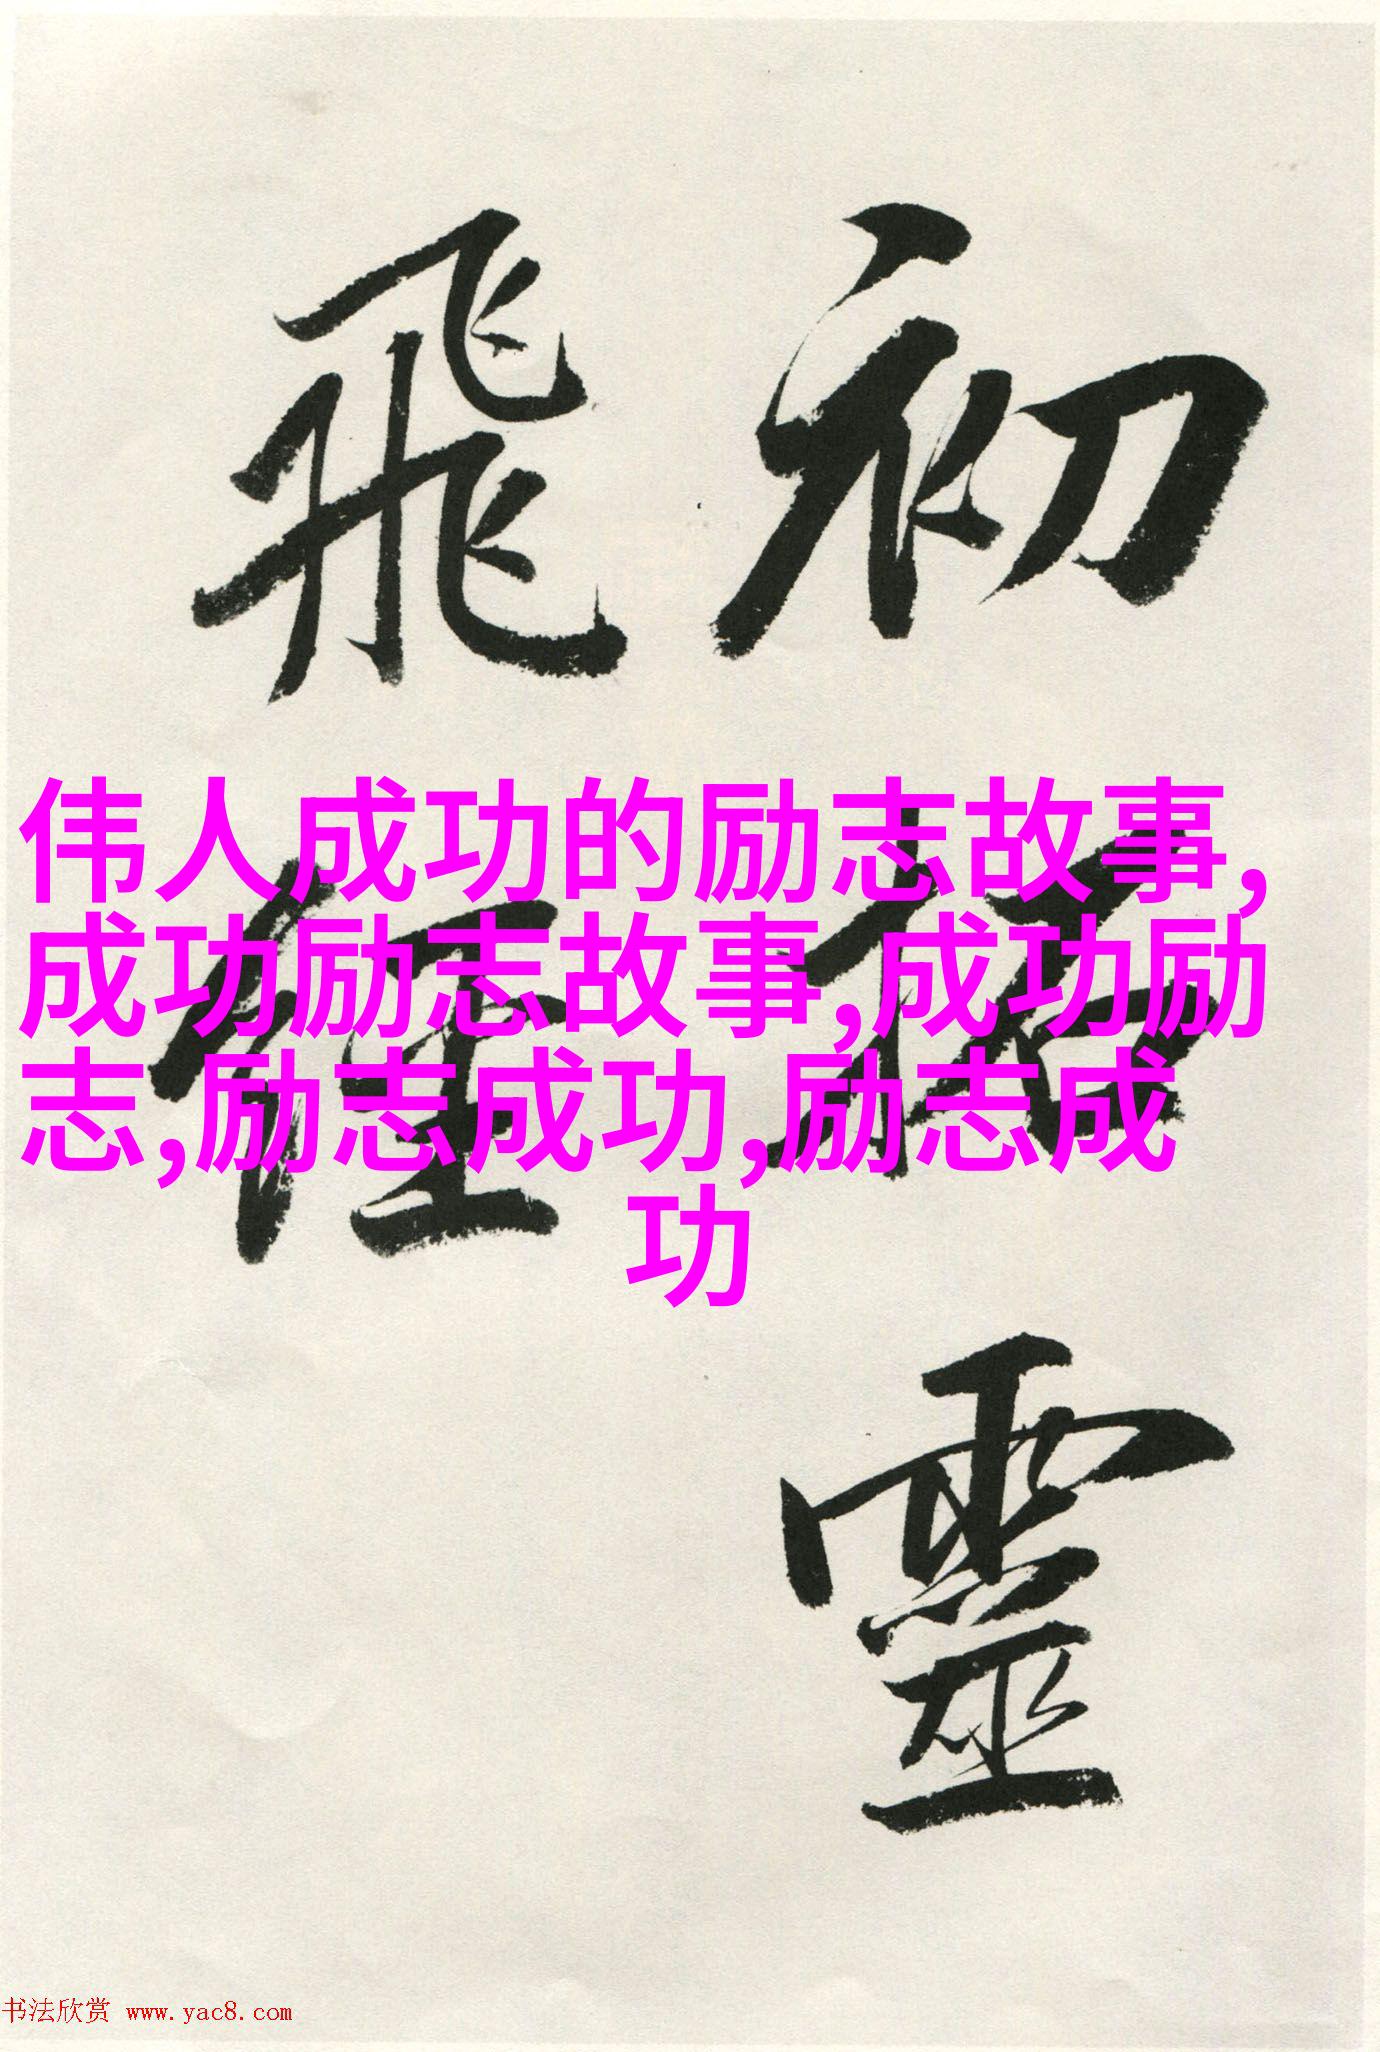 初拓靈
飛經
伟人成功的励志故事,
成功励志故事,成功励
志,励志成功,励志成
功
书法欣赏 www.yac8.com